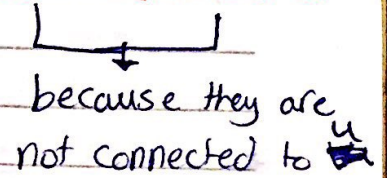 because they are
not connected to u